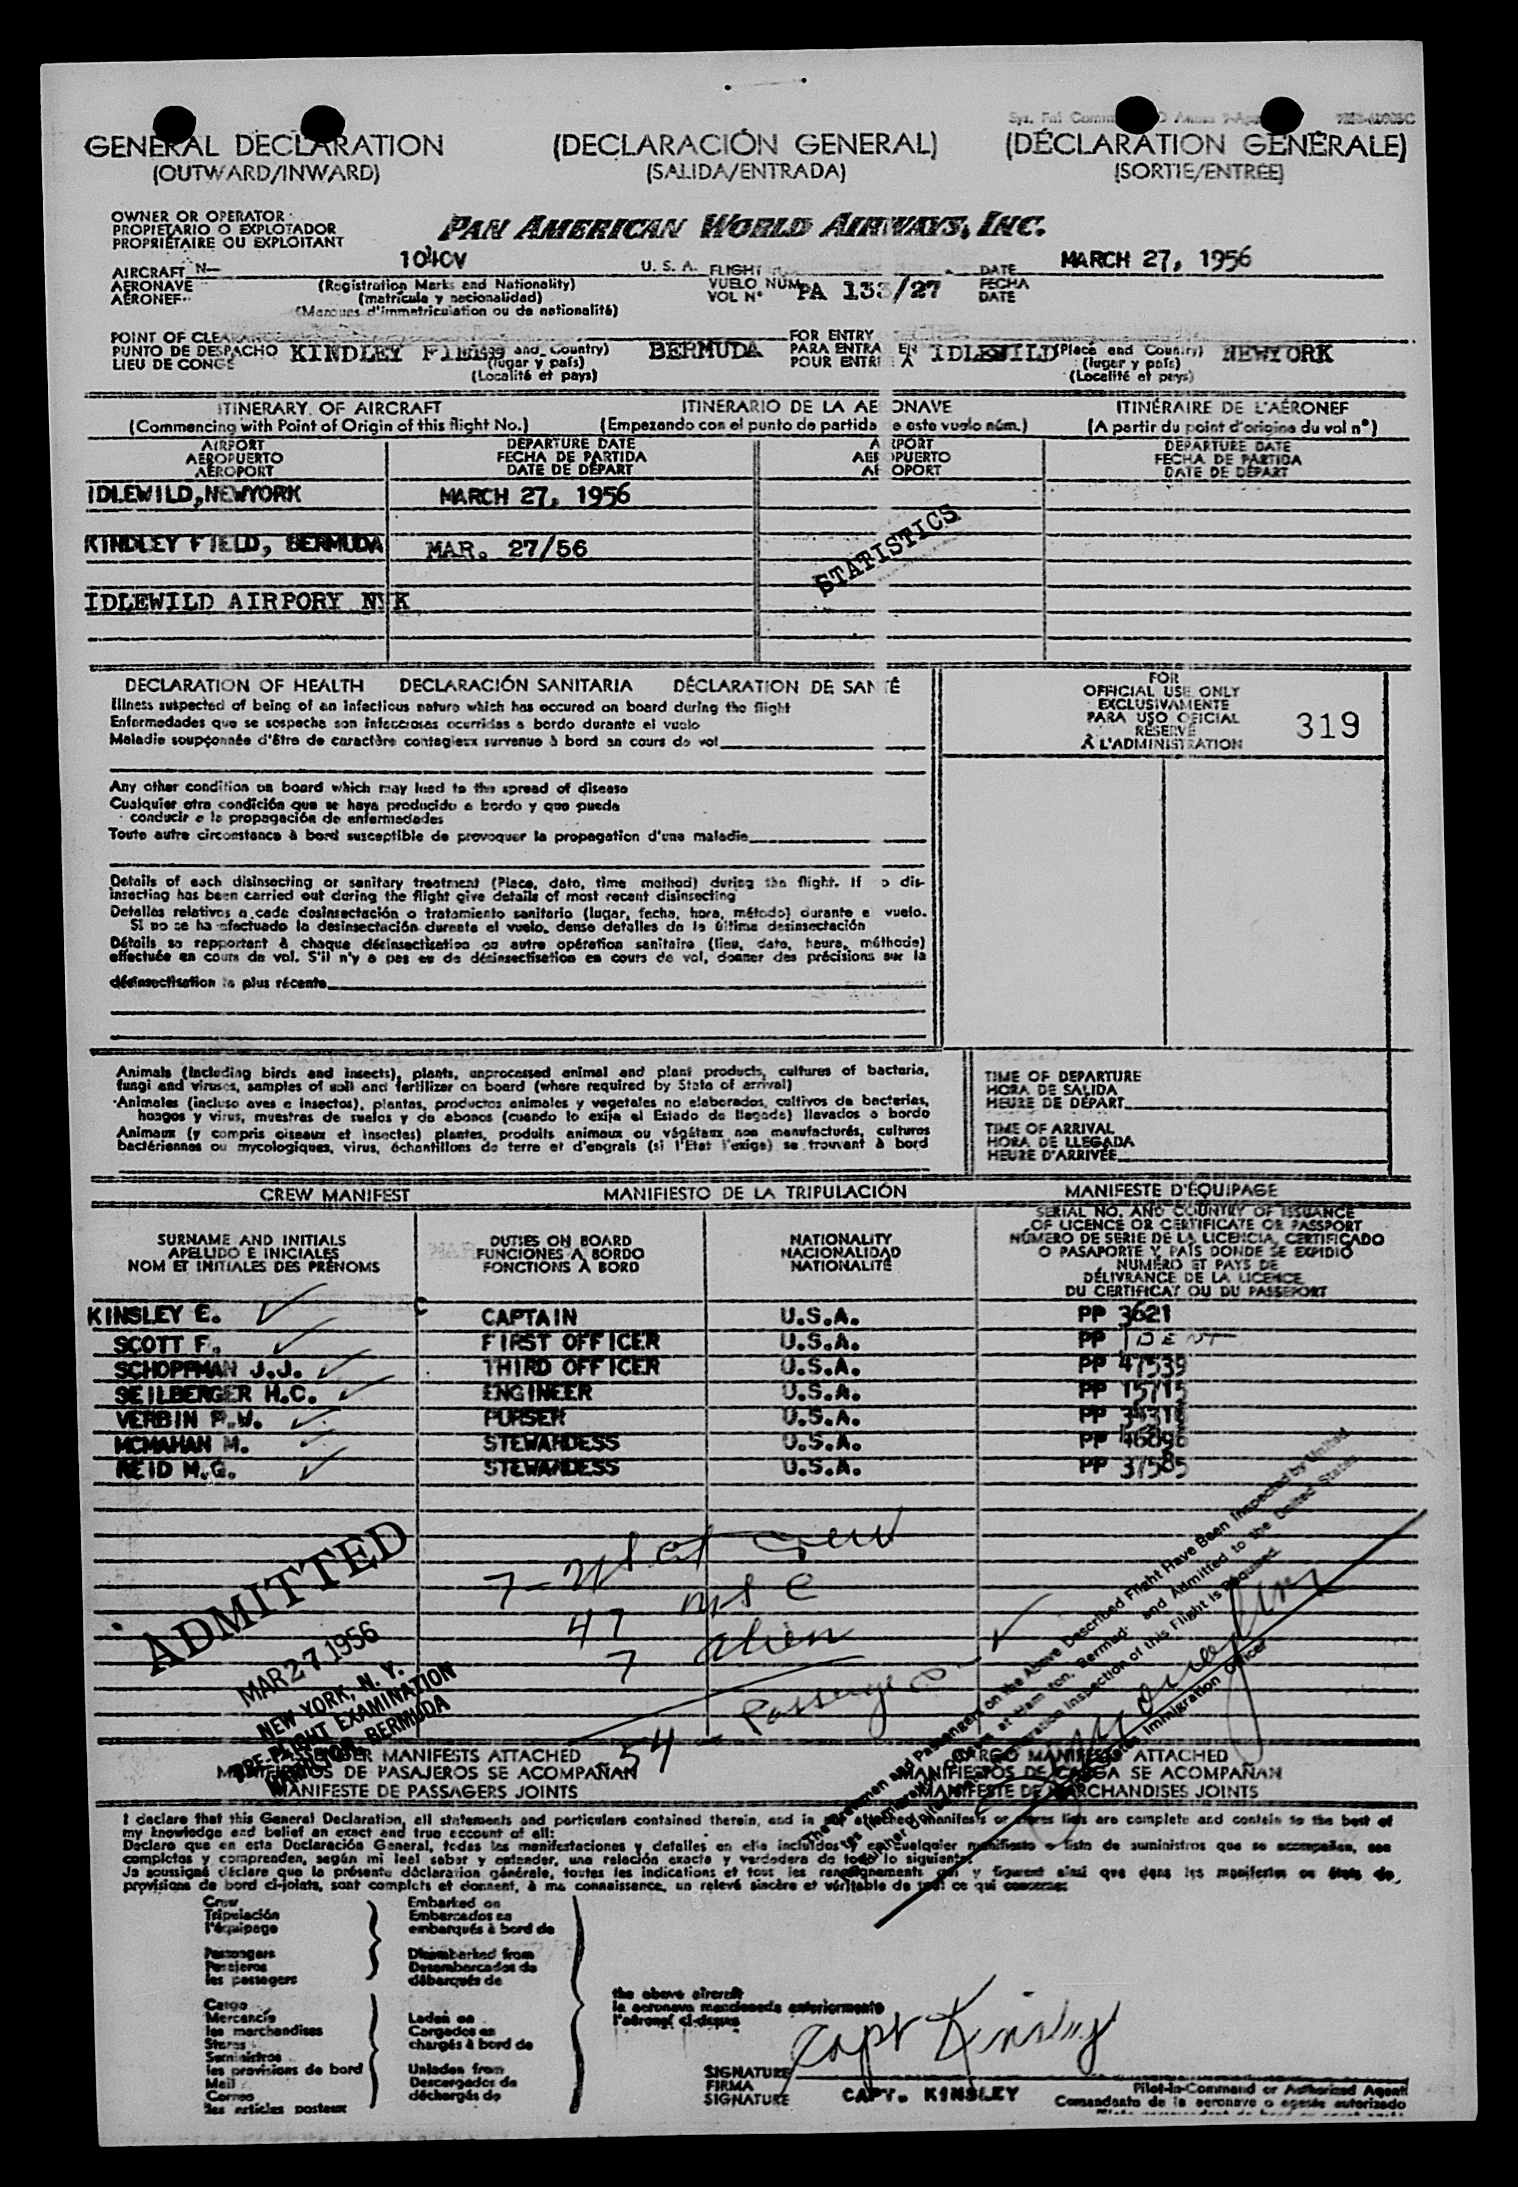 GENERAL DECLARATION (DECLARACIÓN GENERAL) (DÉCLARATION GENERALE)
(OUTWARD/INWARD) (SALIDA/ENTRADA) (SORTIE/ENTREE)
OWNER OR OPERATOR
PROPIETARIO O EXPLOTADOR
PROPRIÉTAIRE OU EXPLOITANT
PAN AMERICAN WORLD AIRWAYS, INC.
AIRCRAFT N— U. S. A. FLIGHT DATE MARCH 27, 1956
AERONAVE (Registration Marks and Nationality) VUELO NÚM. PA 133/27 FECHA
AÉRONEF (matrícula y nacionalidad) VOL N° DATE
(Marques d'immatriculation ou de nationalité)
POINT OF CLEARANCE FOR ENTRY
PUNTO DE DESPACHO KINDLEY and Country) BERMUDA PARA ENTRA EN IDLEWILD (Place and Country) NEWYORK
LIEU DE CONGÉ (lugar y país) POUR ENTRE A (lugar y país)
(Localité et pays) (Localité et pays)
ITINERARY OF AIRCRAFT ITINERARIO DE LA AE ONAVE ITINÉRAIRE DE L'AÉRONEF
(Commencing with Point of Origin of this flight No.) (Empezando con el punto de partida e este vuelo núm.) (A partir du point d'origine du vol n°)
AIRPORT DEPARTURE DATE A RPORT DEPARTURE DATE
AEROPUERTO FECHA DE PARTIDA AE OPUERTO FECHA DE PARTIDA
AÉROPORT DATE DE DÉPART AE OPORT DATE DE DÉPART
IDLEWILD,NEWYORK MARCH 27, 1956
KINDLEY FIELD, BERMUDA MAR. 27/56
STATISTICS
IDLEWILD AIRPORY NYK
DECLARATION OF HEALTH DECLARACIÓN SANITARIA DÉCLARATION DE SANTÉ
Illness suspected of being of an infectious nature which has occured on board during the flight
Enfermedades que se sospecha son infecciosas ocurridas a bordo durante el vuelo
Maladie soupçonnée d'être de caractère contagieux survenue à bord en cours de vol
FOR
OFFICIAL USE ONLY
EXCLUSIVAMENTE
PARA USO OFICIAL
RÉSERVÉ
À L'ADMINISTRATION
319
Any other condition on board which may lead to the spread of disease
Cualquier otra condición que se haya producido a bordo y que pueda
conducir a la propagación de enfermedades
Toute autre circonstance à bord susceptible de provoquer la propagation d'une maladie
Details of each disinsecting or sanitary treatment (Place, date, time method) during the flight. If o dis-
insecting has been carried out during the flight give details of most recent disinsecting
Detalles relativos a cada desinsectación o tratamiento sanitario (lugar, fecha, hora, método) durante e vuelo.
Si no se ha efectuado la desinsectación durante el vuelo, dense detalles de la última desinsectación
Détails se rapportant à chaque désinsectisation ou autre opération sanitaire (lieu, date, heure, méthode)
effectuée en cours de vol. S'il n'y a pas eu de désinsectisation en cours de vol, donner des précisions sur la
désinsectisation la plus récente
Animals (including birds and insects), plants, unprocessed animal and plant products, cultures of bacteria,
fungi and viruses, samples of soil and fertilizer on board (where required by State of arrival)
Animales (incluso aves e insectos), plantas, productos animales y vegetales no elaborados, cultivos de bacterias,
hongos y virus, muestras de suelos y de abonos (cuando lo exija el Estado de llegada) llevados a bordo
Animaux (y compris oiseaux et insectes) plantes, produits animaux ou végétaux non manufacturés, cultures
bactériennes ou mycologiques, virus, échantillons de terre et d'engrais (si l'Etat l'exige) se trouvant à bord
TIME OF DEPARTURE
HORA DE SALIDA
HEURE DE DÉPART
TIME OF ARRIVAL
HORA DE LLEGADA
HEURE D'ARRIVÉE
CREW MANIFEST MANIFIESTO DE LA TRIPULACIÓN MANIFESTE D'ÉQUIPAGE
SURNAME AND INITIALS
APELLIDO E INICIALES
NOM ET INITIALES DES PRÉNOMS
DUTIES ON BOARD
FUNCIONES A BORDO
FONCTIONS À BORD
NATIONALITY
NACIONALIDAD
NATIONALITÉ
SERIAL NO. AND COUNTRY OF ISSUANCE
OF LICENCE OR CERTIFICATE OR PASSPORT
NÚMERO DE SERIE DE LA LICENCIA, CERTIFICADO
O PASAPORTE Y PAÍS DONDE SE EXPIDIÓ
NUMÉRO ET PAYS DE
DÉLIVRANCE DE LA LICENCE
DU CERTIFICAT OU DU PASSEPORT
KINSLEY E. CAPTAIN U.S.A. PP 3621
SCOTT F. FIRST OFFICER U.S.A. PP IDENT
SCHOPPMAN J.J. THIRD OFFICER U.S.A. PP 47539
SEILBERGER H.C. ENGINEER U.S.A. PP 15715
VERBIN P.W. PURSER U.S.A. PP
MCMAHAN M. STEWARDESS U.S.A. PP 46096
REID M.G. STEWARDESS U.S.A. PP 37585
7 - crew
47
7 alien
54 - Passenger
ADMITTED
MAR 27 1956
NEW YORK, N. Y.
PRE-FLIGHT EXAMINATION
BERMUDA
The Crewmen and Passengers on the Above Described Flight Have Been Inspected by United
and Admitted to the United States
Inspection of this Flight is Required.
Immigration Officer
PASSENGER MANIFESTS ATTACHED CARGO MANIFESTS ATTACHED
MANIFIESTOS DE PASAJEROS SE ACOMPAÑAN MANIFIESTOS DE CARGA SE ACOMPAÑAN
MANIFESTE DE PASSAGERS JOINTS MANIFESTE DE MARCHANDISES JOINTS
I declare that this General Declaration, all statements and particulars contained therein, and in any attached manifests or stores lists are complete and contain to the best of
my knowledge and belief an exact and true account of all:
Declaro que en esta Declaración General, todas las manifestaciones y detalles en ella incluídos y en cualquier manifiesto o lista de suministros que se acompañan, son
completos y comprenden, según mi leal saber y entender, una relación exacta y verdadera de todo lo siguiente:
Je soussigné déclare que la présente déclaration générale, toutes les indications et tous les renseignements qui y figurent ainsi que dans les manifestes ou états de
provisions de bord ci-joints, sont complets et donnent, à ma connaissance, un relevé sincère et véritable de tout ce qui concerne:
Crew
Tripulación
l'équipage
Passengers
Pasajeros
les passagers
Cargo
Mercancía
les marchandises
Stores
Suministros
les provisions de bord
Mail
Correo
les articles postaux
Embarked on
Embarcados en
embarqués à bord de
Disembarked from
Desembarcados de
débarqués de
Laden on
Cargados en
chargés à bord de
Unladen from
Descargados de
déchargés de
the above aircraft
la aeronave mencionada anteriormente
l'aéronef ci-dessus
Capt Kinsley
SIGNATURE
FIRMA
SIGNATURE
CAPT. KINSLEY
Pilot-in-Command or Authorized Agent
Comandante de la aeronave o agente autorizado